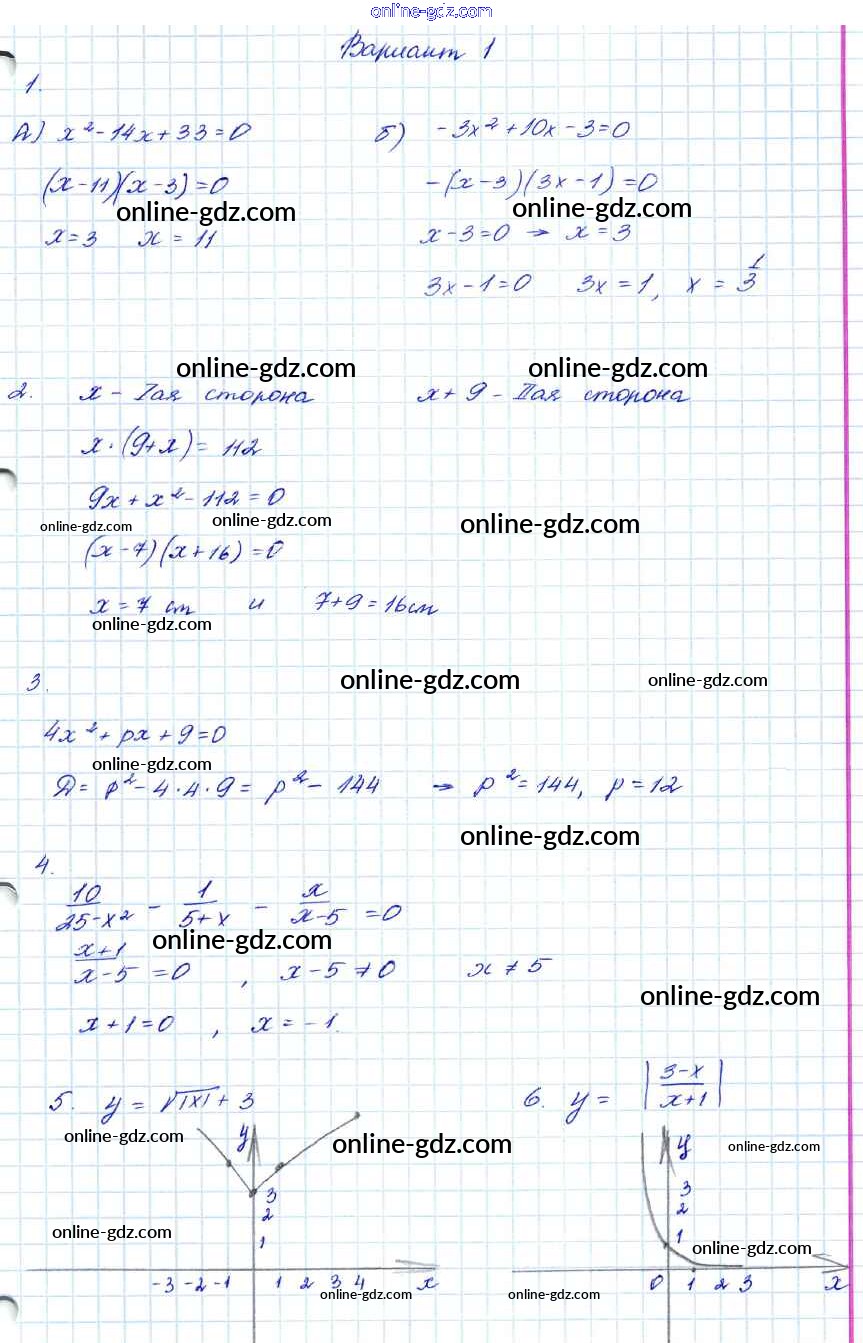 online-gdz.com
Вариант 1
1.
А) x² - 14x + 33 = 0
(x-11)(x-3) = 0
online-gdz.com
x = 3 x = 11
б) -3x² + 10x - 3 = 0
-(x-3)(3x-1) = 0
online-gdz.com
x-3=0 → x = 3
3x-1=0 3x = 1, x = 1/3
online-gdz.com online-gdz.com
2. x - Iая сторона x+9 - IIая сторона
x·(9+x) = 112
9x + x² - 112 = 0
online-gdz.com online-gdz.com online-gdz.com
(x-7)(x+16) = 0
x = 7 cm и 7+9 = 16 cm
online-gdz.com
3.
online-gdz.com online-gdz.com
4x² + px + 9 = 0
online-gdz.com
Д = p² - 4·4·9 = p² - 144 → p² = 144, p = 12
online-gdz.com
4.
10/(25-x²) - 1/(5+x) - x/(x-5) = 0
online-gdz.com
(x+1)/(x-5) = 0, x-5 ≠ 0 x ≠ 5
online-gdz.com
x+1=0, x = -1.
5. y = √|x| + 3
online-gdz.com online-gdz.com
y
3
2
1
online-gdz.com
-3 -2 -1 1 2 3 4 x
online-gdz.com
6. y = |(3-x)/(x+1)|
y
online-gdz.com
3
2
1
online-gdz.com
0 1 2 3 x
online-gdz.com